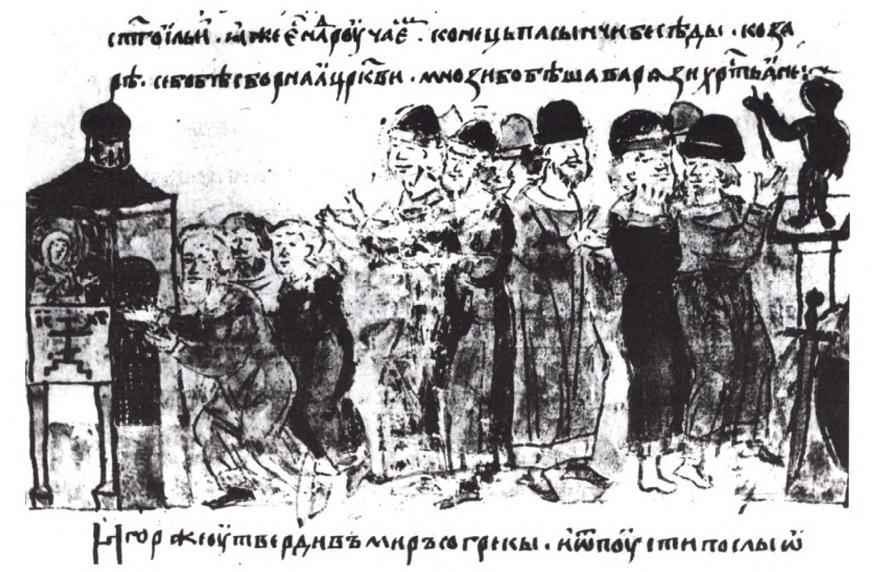 ст҃гоильи · ꙗжеє҃надроучаєⷨ · конецьпасынчибесѣды · коза
рѣ · себобѣсборнаꙗцр҃кви · мнозибобѣшаварѧзихрт҃ьꙗне:
Игоржеоутвердивъмиръсогрекы · иѿпоустипослыѿ